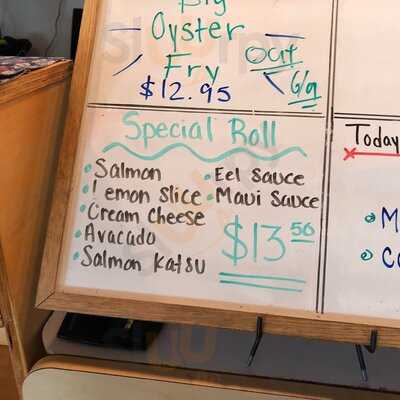 Big
Oyster
Fry
$12.95
out
6/9
Special Roll
• Salmon
• Lemon Slice
• Cream Cheese
• Avacado
• Salmon Katsu
• Eel Sauce
• Maui Sauce
$13 50
Today